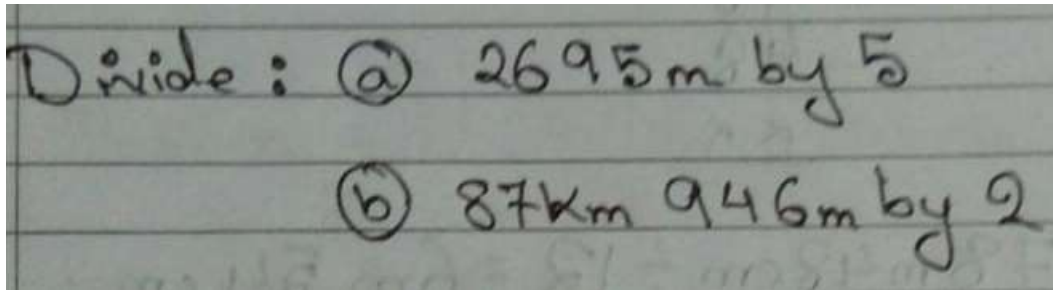 Divide : (a) 2695m by 5
(b) 87km 946m by 2